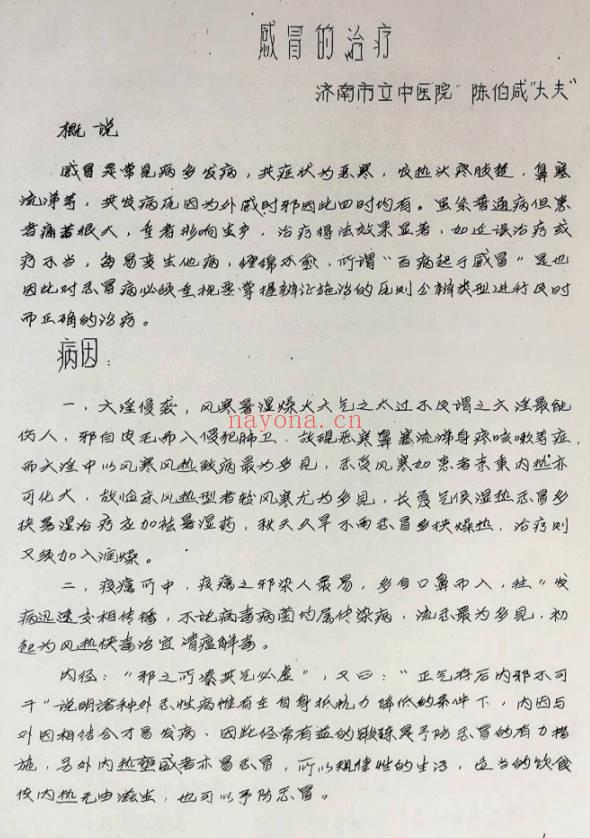 感冒的治疗
济南市立中医院"陈伯咸"大夫"
概说
感冒是常见病多发病，其症状为恶寒，发热头疼肢楚，鼻塞
流涕等，其发病瓦因为外感时邪因此四时均有。虽系普通病但患
者痛苦很大，重者影响生产，治疗得法效果显著，如迁误治疗或
疗不当，每易变生他病，缠绵不愈，所谓"百病起于感冒"是也
因此对感冒病必须重视要掌握辨证施治的瓦则分辨类型进行及时
而正确的治疗。
病因：
一，六淫侵袭，风寒暑湿燥火六气之太过不及谓之六淫最能
nayona.cn
伤人，邪自皮毛而入侵犯肺卫，故现恶寒鼻塞流涕身疼咳嗽等症，
而六淫中以风寒风热致病最为多见，感受风寒如患者素秉内热亦
可化火，故临床风热型者较风寒尤为多见，长夏气候湿热感冒多
挟暑湿治疗应加祛暑湿药，秋天久旱不雨感冒多挟燥热，治疗则
又须加入润燥。
二，疫疠所中，疫疠之邪染人最易，多自口鼻而入，往"发
病迅速交相传播，不论病毒病菌均属传染病，流感最为多见，初
起为风热挟毒治宜清瘟解毒。
内径："邪之所凑其气必虚"，又曰："正气存后内邪不可
干"说明诸种外感性病惟有在自身抵抗力降低的条件下，内因与
外因相结合才易发病，因此经常有益的锻殊是予防感冒的有力措
施，另外内热壅盛者亦易感冒，所以规律性的生活，适当的饮食
使内热无由滋生，也可以予防感冒。